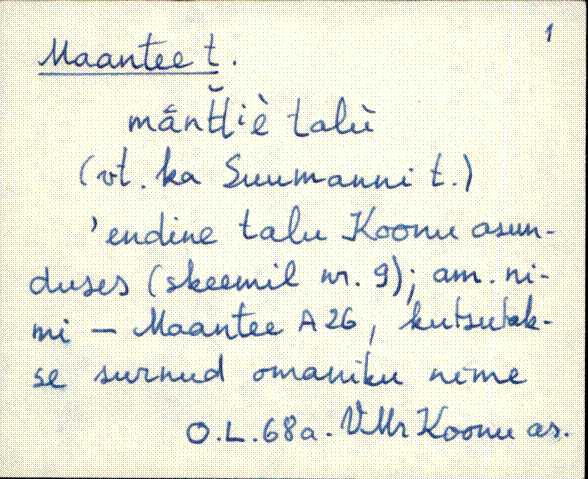 1
Maantee t.
mā̆nt̆t̆iè talù
(vt. ka Suumanni t.)
'endine talu Koonu asun-
duses (skeemil nr. 9); am. ni-
mi — Maantee A 26, kutsutak-
se surnud omaniku nime
O.L. 68a. VMr Koonu as.